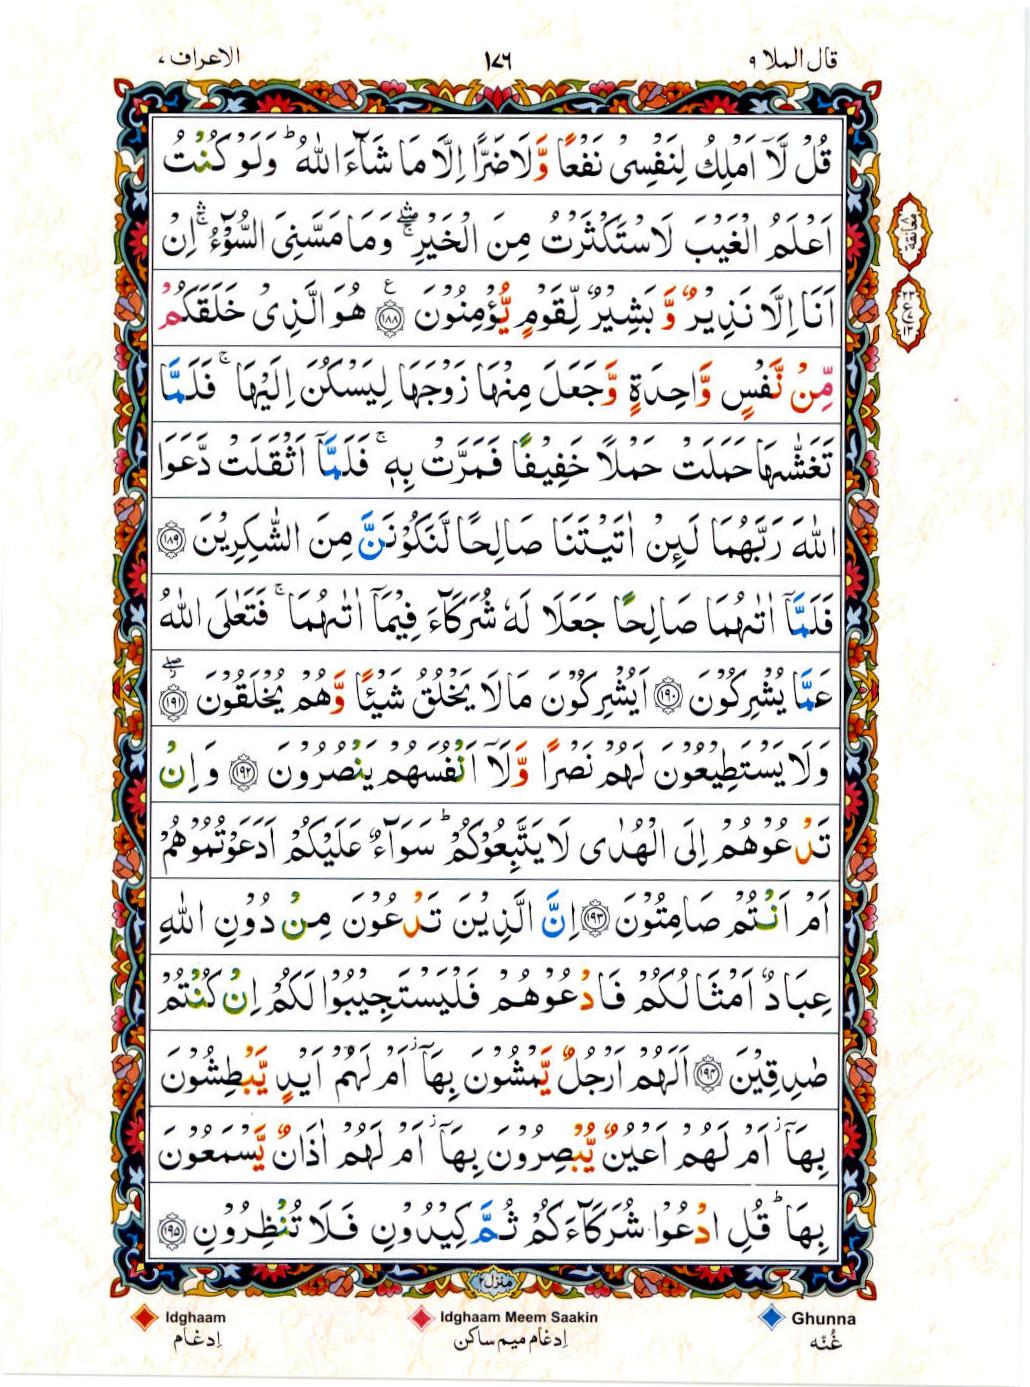 قال الملا ٩
١٧٦
الاعراف ٧
قُلْ لَّاۤ اَمْلِكُ لِنَفْسِیْ نَفْعًا وَّلَا ضَرًّا اِلَّا مَا شَآءَ اللّٰهُ ؕ وَلَوْ كُنْتُ
اَعْلَمُ الْغَیْبَ لَاسْتَكْثَرْتُ مِنَ الْخَیْرِ ۛۚ وَمَا مَسَّنِیَ السُّوْٓءُ ۛۚ اِنْ
معانقة
اَنَا اِلَّا نَذِیْرٌ وَّ بَشِیْرٌ لِّقَوْمٍ یُّؤْمِنُوْنَ ﴿۱۸۸﴾ ع هُوَ الَّذِیْ خَلَقَكُمْ
مِّنْ نَّفْسٍ وَّاحِدَةٍ وَّجَعَلَ مِنْهَا زَوْجَهَا لِیَسْكُنَ اِلَیْهَا ۚ فَلَمَّا
تَغَشّٰىهَا حَمَلَتْ حَمْلًا خَفِیْفًا فَمَرَّتْ بِهٖ ۚ فَلَمَّاۤ اَثْقَلَتْ دَّعَوَا
اللّٰهَ رَبَّهُمَا لَىِٕنْ اٰتَیْتَنَا صَالِحًا لَّنَكُوْنَنَّ مِنَ الشّٰكِرِیْنَ ﴿۱۸۹﴾
فَلَمَّاۤ اٰتٰىهُمَا صَالِحًا جَعَلَا لَهٗ شُرَكَآءَ فِیْمَاۤ اٰتٰىهُمَا ۚ فَتَعٰلَی اللّٰهُ
عَمَّا یُشْرِكُوْنَ ﴿۱۹۰﴾ اَیُشْرِكُوْنَ مَا لَا یَخْلُقُ شَیْـًٔا وَّهُمْ یُخْلَقُوْنَ ﴿۱۹۱﴾ۖ
وَلَا یَسْتَطِیْعُوْنَ لَهُمْ نَصْرًا وَّلَاۤ اَنْفُسَهُمْ یَنْصُرُوْنَ ﴿۱۹۲﴾ وَاِنْ
تَدْعُوْهُمْ اِلَی الْهُدٰی لَا یَتَّبِعُوْكُمْ ؕ سَوَآءٌ عَلَیْكُمْ اَدَعَوْتُمُوْهُمْ
اَمْ اَنْتُمْ صَامِتُوْنَ ﴿۱۹۳﴾ اِنَّ الَّذِیْنَ تَدْعُوْنَ مِنْ دُوْنِ اللّٰهِ
عِبَادٌ اَمْثَالُكُمْ فَادْعُوْهُمْ فَلْیَسْتَجِیْبُوْا لَكُمْ اِنْ كُنْتُمْ
صٰدِقِیْنَ ﴿۱۹۴﴾ اَلَهُمْ اَرْجُلٌ یَّمْشُوْنَ بِهَاۤ ؗ اَمْ لَهُمْ اَیْدٍ یَّبْطِشُوْنَ
بِهَاۤ ؗ اَمْ لَهُمْ اَعْیُنٌ یُّبْصِرُوْنَ بِهَاۤ ؗ اَمْ لَهُمْ اٰذَانٌ یَّسْمَعُوْنَ
بِهَا ؕ قُلِ ادْعُوْا شُرَكَآءَكُمْ ثُمَّ كِیْدُوْنِ فَلَا تُنْظِرُوْنِ ﴿۱۹۵﴾
منزل ٢
Idghaam
Idghaam Meem Saakin
Ghunna
اِدغام
اِدغام میم ساکن
غُنّه